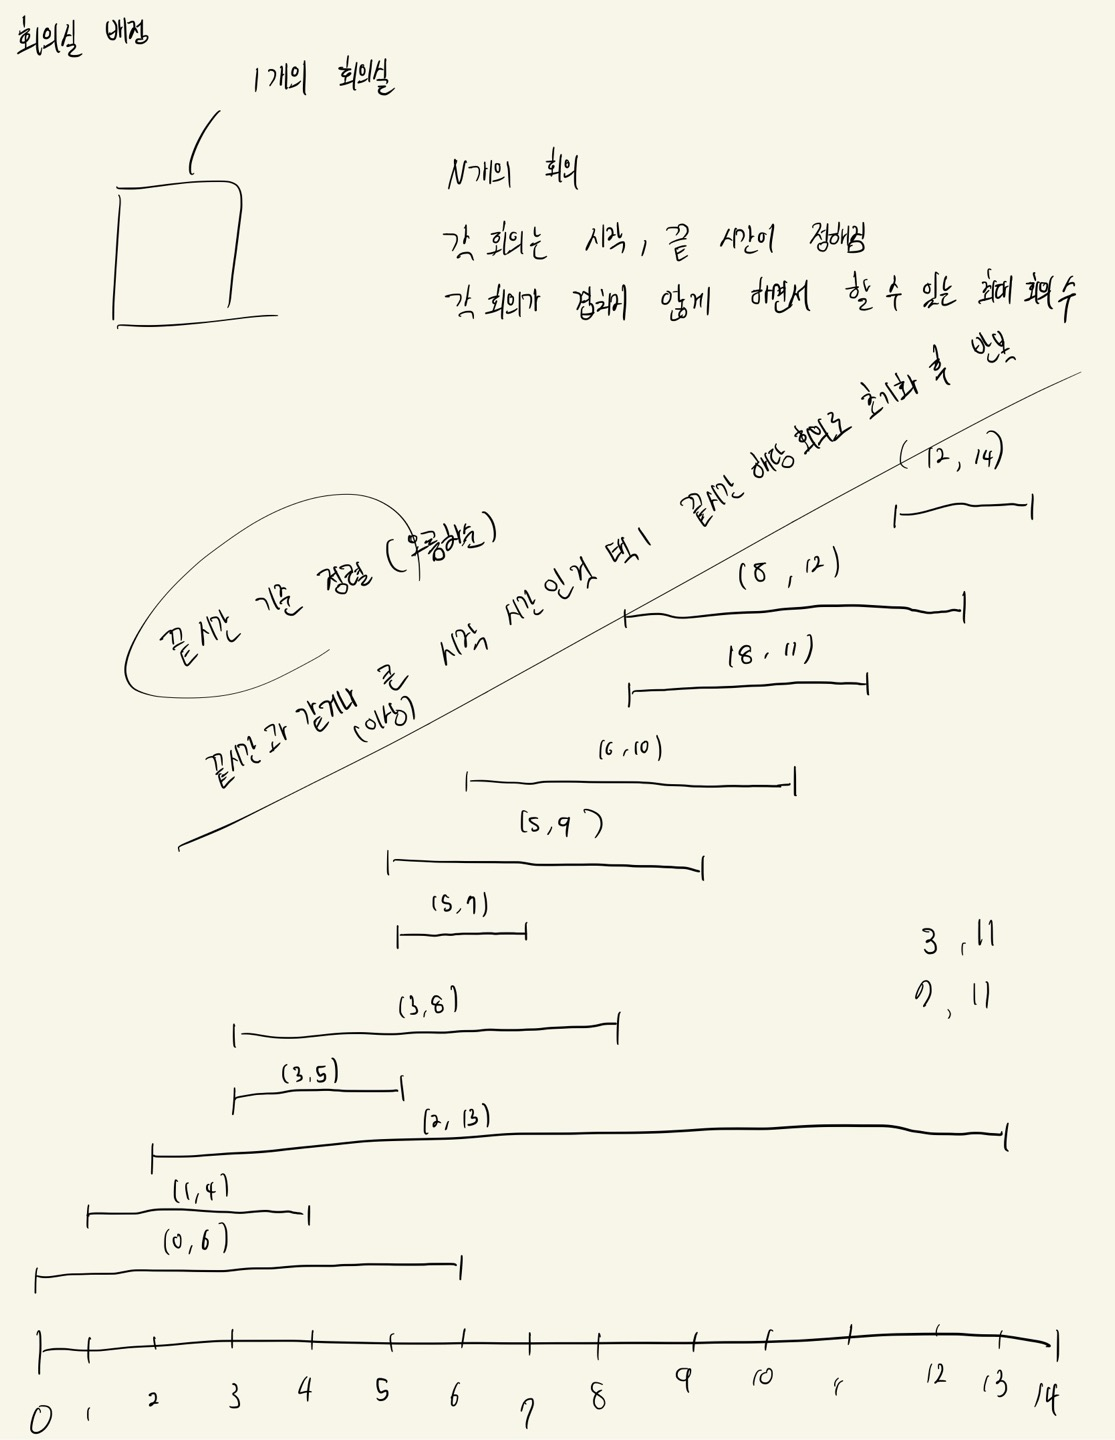 회의실 배정
1개의 회의실
N개의 회의
각 회의는 시작, 끝 시간이 정해짐
각 회의가 겹치지 않게 하면서 할 수 있는 최대 회의 수
끝시간 기준 정렬 (오름차순)
끝시간과 같거나 큰 시작 시간인것 택1 끝시간 해당 회의로 초기화 후 반복
(이상)
(12, 14)
(8, 12)
(8, 11)
(6, 10)
(5, 9)
(5, 7)
3, 11
7, 11
(3, 8)
(3, 5)
(2, 13)
(1, 4)
(0, 6)
0 1 2 3 4 5 6 7 8 9 10 11 12 13 14